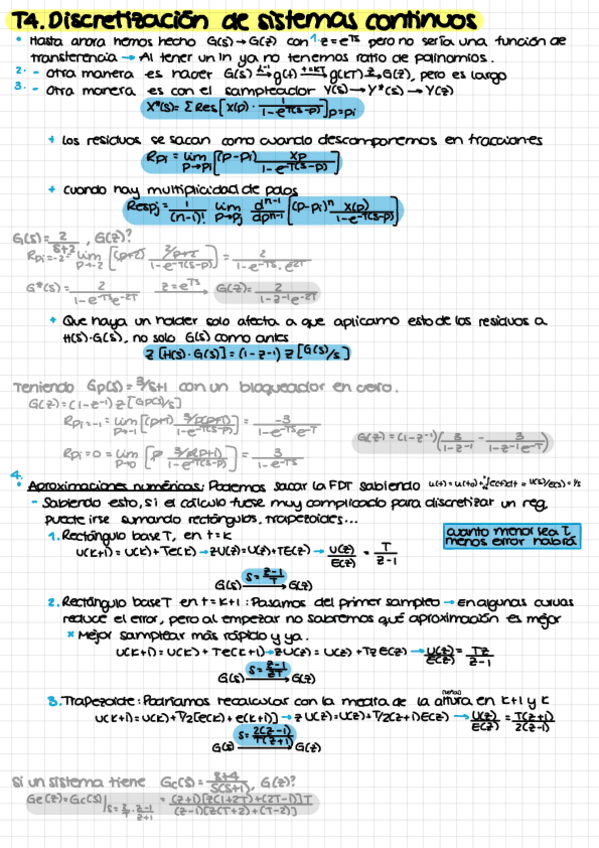 T4. Discretización de sistemas continuos
• Hasta ahora hemos hecho G(s)→G(z) con 1· z=e^Ts pero no sería una función de
transferencia → Al tener un ln ya no tenemos ratio de polinomios.
2· - Otra manera es hacer G(s) L⁻¹→ g(t) t=KT→ g(KT) Z→ G(z), pero es largo
3· - Otra manera es con el sampleador Y(s)→Y*(s)→Y(z)
X*(s) = Σ Res[X(p) · 1/(1-e^-T(s-p))]p=pi
+ Los residuos se sacan como cuando descomponemos en fracciones
Rpi = lim p→pi [(p-pi) Xp/(1-e^-T(s-p))]
+ Cuando hay multiplicidad de polos
Respj = 1/(n-1)! lim p→pj d^n-1/dp^n-1 [(p-pi)^n X(p)/(1-e^-T(s-p))]
G(s) = 2/(s+2), G(z)?
Rpi=-2 = lim p→-2 [(p+2) 2/p+2/(1-e^-T(s-p))] = 2/(1-e^-Ts · e^2T)
G*(s) = 2/(1-e^-Ts e^-2T) z=e^Ts → G(z) = 2/(1-z^-1 e^-2T)
+ Que haya un holder solo afecta a que aplicamo esto de los residuos a
H(s)·G(s), no solo G(s) como antes
Z[H(s)·G(s)] = (1-z^-1) Z[G(s)/s]
Teniendo Gp(s) = 3/s+1 con un bloqueador en cero.
G(z) = (1-z^-1) Z[Gp(s)/s]
Rpi=-1 = lim p→-1 [(p+1) 3/p(p+1)/(1-e^-T(s-p))] = -3/(1-e^-Ts e^-T)
Rpi=0 = lim p→0 [p 3/p(p+1)/(1-e^-T(s-p))] = 3/(1-e^-Ts)
G(z) = (1-z^-1)(3/(1-z^-1) - 3/(1-z^-1 e^-T))
4.
• Aproximaciones numéricas: Podemos sacar la FDT sabiendo
- Sabiendo esto, si el cálculo fuse muy complicado para discretizar un reg,
puede irse sumando rectángulos, trapezoides...
cuanto menor sea T,
menos error habrá
1. Rectángulo base T, en t=K
u(K+1) = u(K) + Te(K) → zU(z) = U(z) + TE(z) → U(z)/E(z) = T/(z-1)
G(s) s=(z-1)/T → G(z)
2. Rectángulo base T en t=K+1: Pasamos del primer sampleo → En algunas curvas
reduce el error, pero al empezar no sabremos qué aproximación es mejor
* Mejor samplear más rápido y ya.
u(K+1) = u(K) + Te(K+1) → zU(z) = U(z) + TzE(z) → U(z)/E(z) = Tz/(z-1)
G(s) s=(z-1)/zT → G(z)
3. Trapezoide: Podríamos recalcular con la media de la altura en K+1 y K
u(K+1) = u(K) + T/2[e(K) + e(K+1)] → zU(z) = U(z) + T/2(z+1)E(z) → U(z)/E(z) = T(z+1)/2(z-1)
G(s) s=2(z-1)/T(z+1) → G(z)
Si un sistema tiene Gc(s) = (s+4)/s(s+1), G(z)?
Gc(z) = Gc(s)|s=2/T · (z-1)/(z+1) = (z+1)[z(1+2T)+(2T-1)]T/(z-1)[z(T+2)+(T-2)]